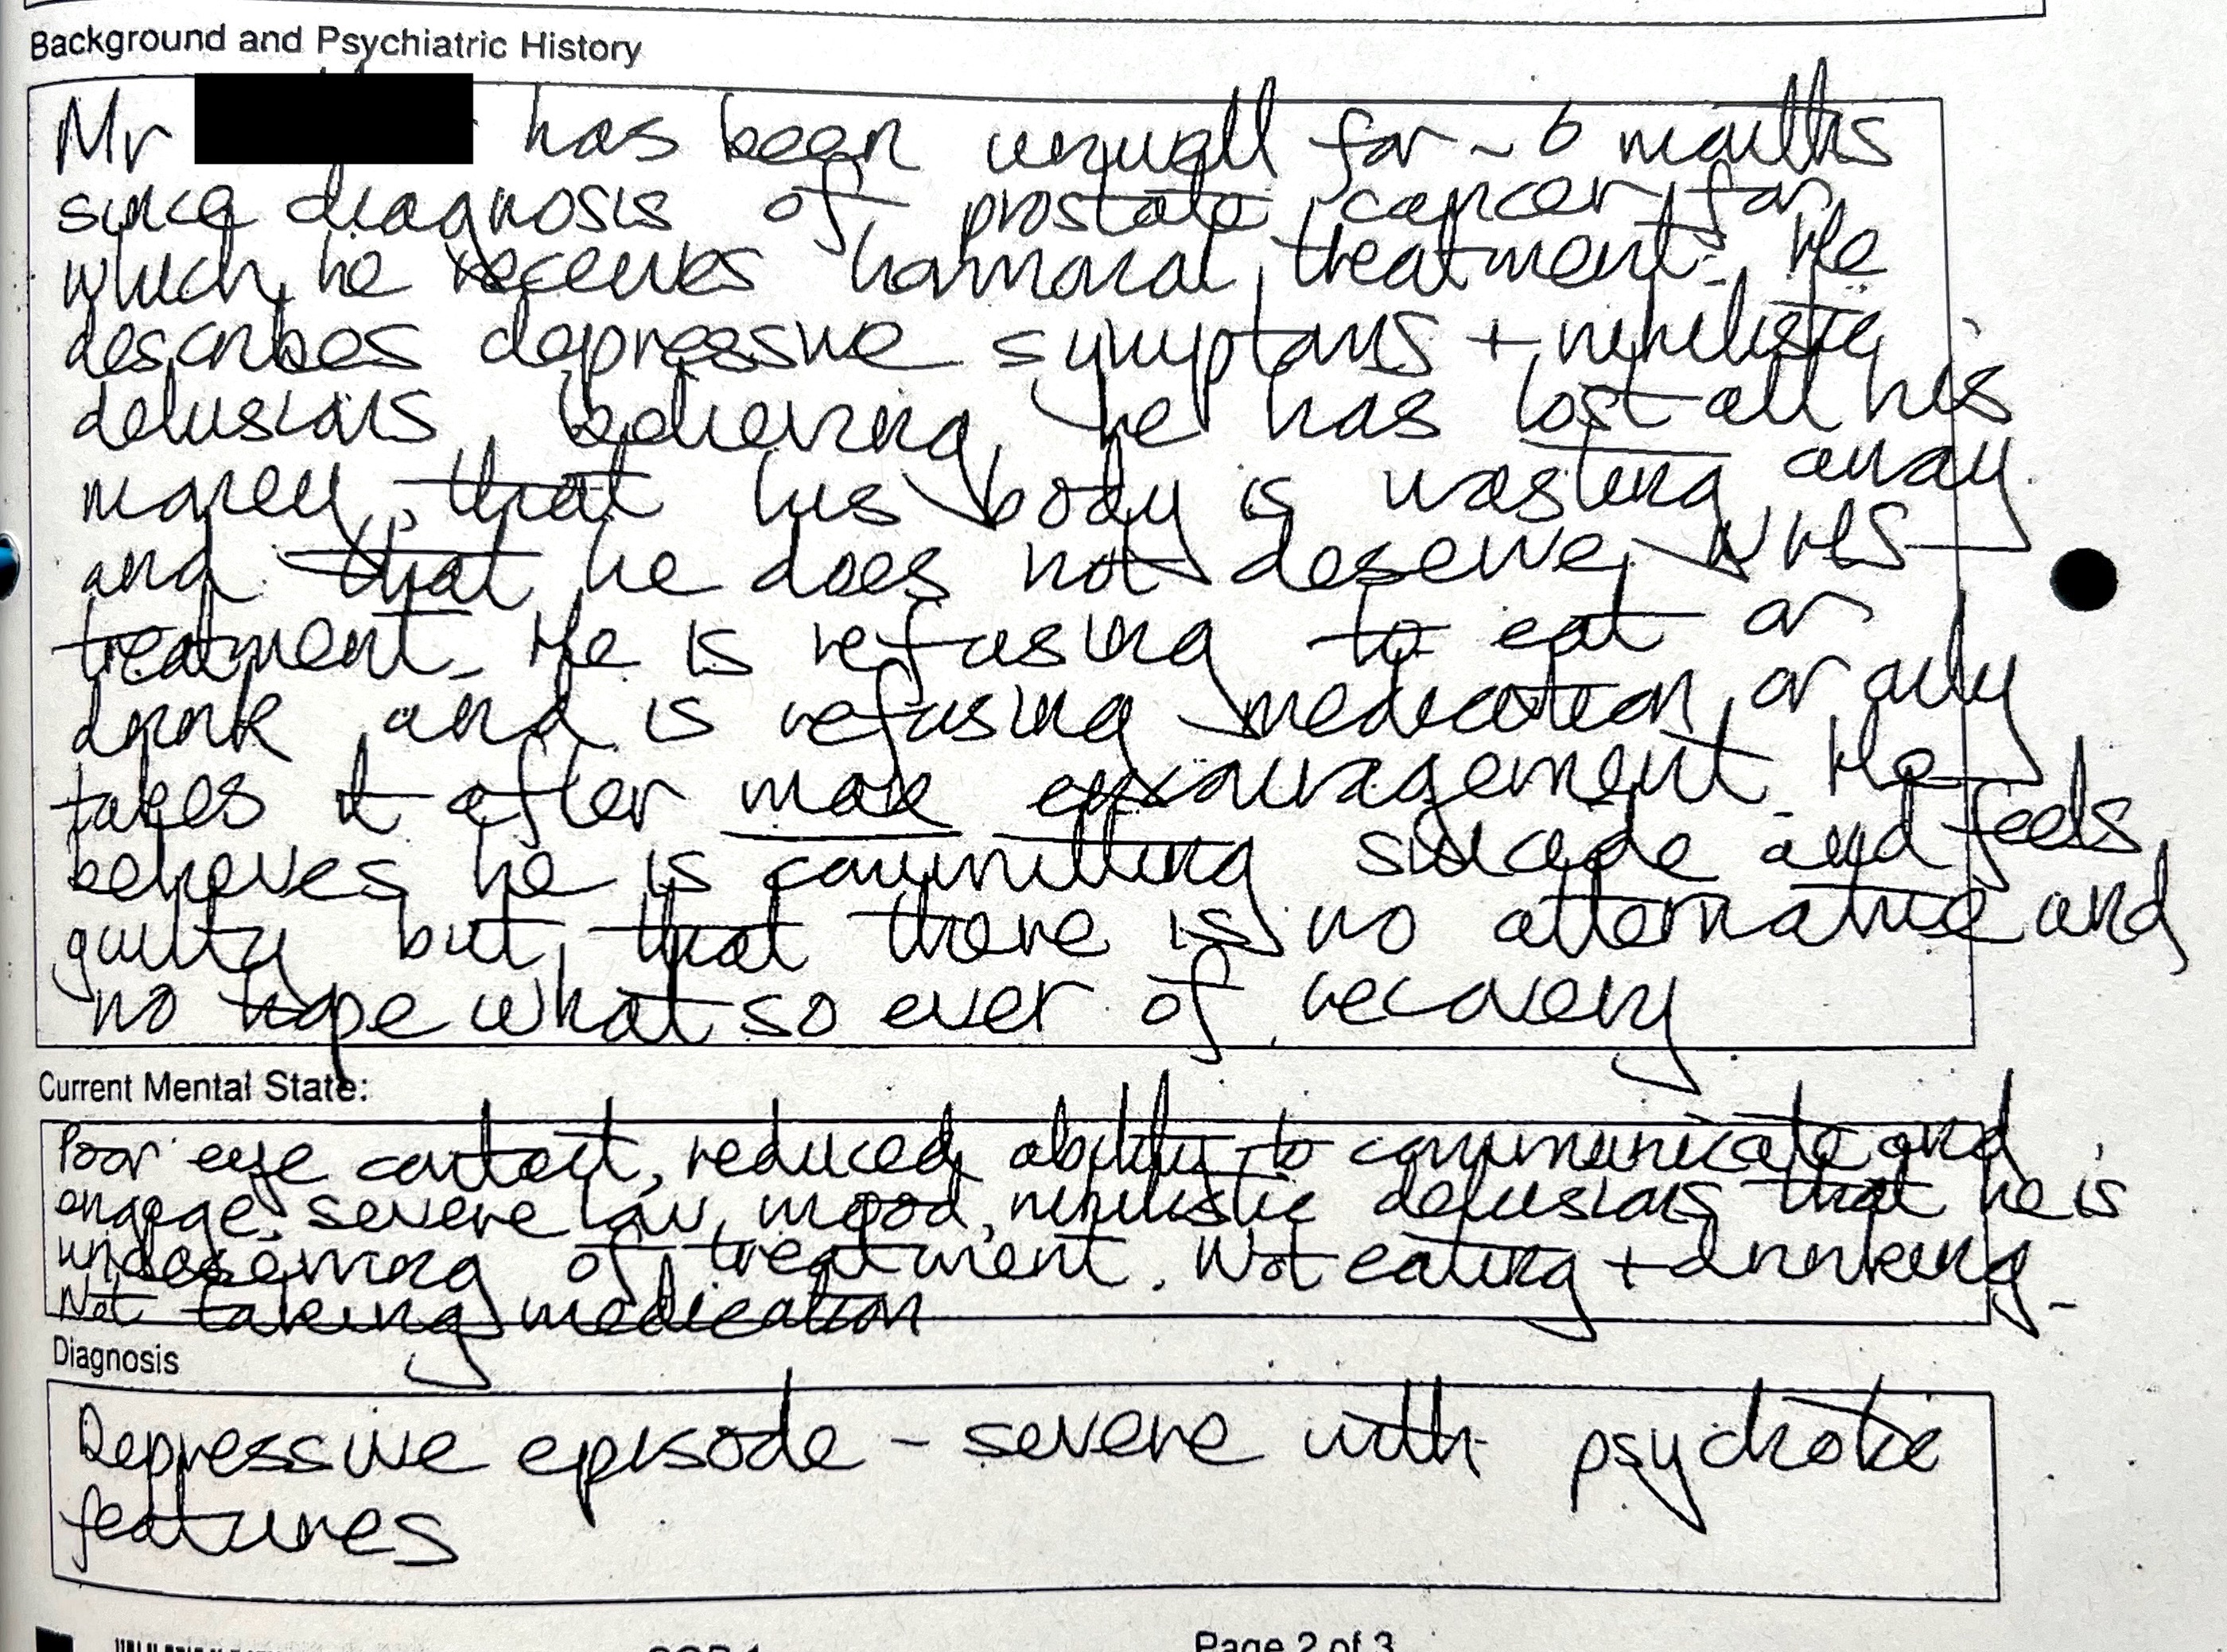 Background and Psychiatric History
Mr has been unwell for ~ 6 months
since diagnosis of prostate cancer for
which he receives hormonal treatment. He
describes depressive symptoms + nihilistic
delusions believing he has lost all his
money, that his body is wasting away
and that he does not deserve NHS
treatment. He is refusing to eat or
drink and is refusing medication or only
takes it after max encouragement. He
believes he is committing suicide and feels
guilty but that there is no alternative and
no hope what so ever of recovery
Current Mental State:
Poor eye contact, reduced ability to communicate and
engage, severe low mood, nihilistic delusions that he is
undeserving of treatment. Not eating + drinking.
Not taking medication
Diagnosis
Depressive episode - severe with psychotic
features
Page 2 of 3